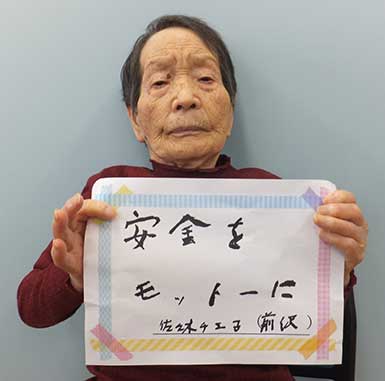 安金を
モットーに
佐々木チエ子(前沢)